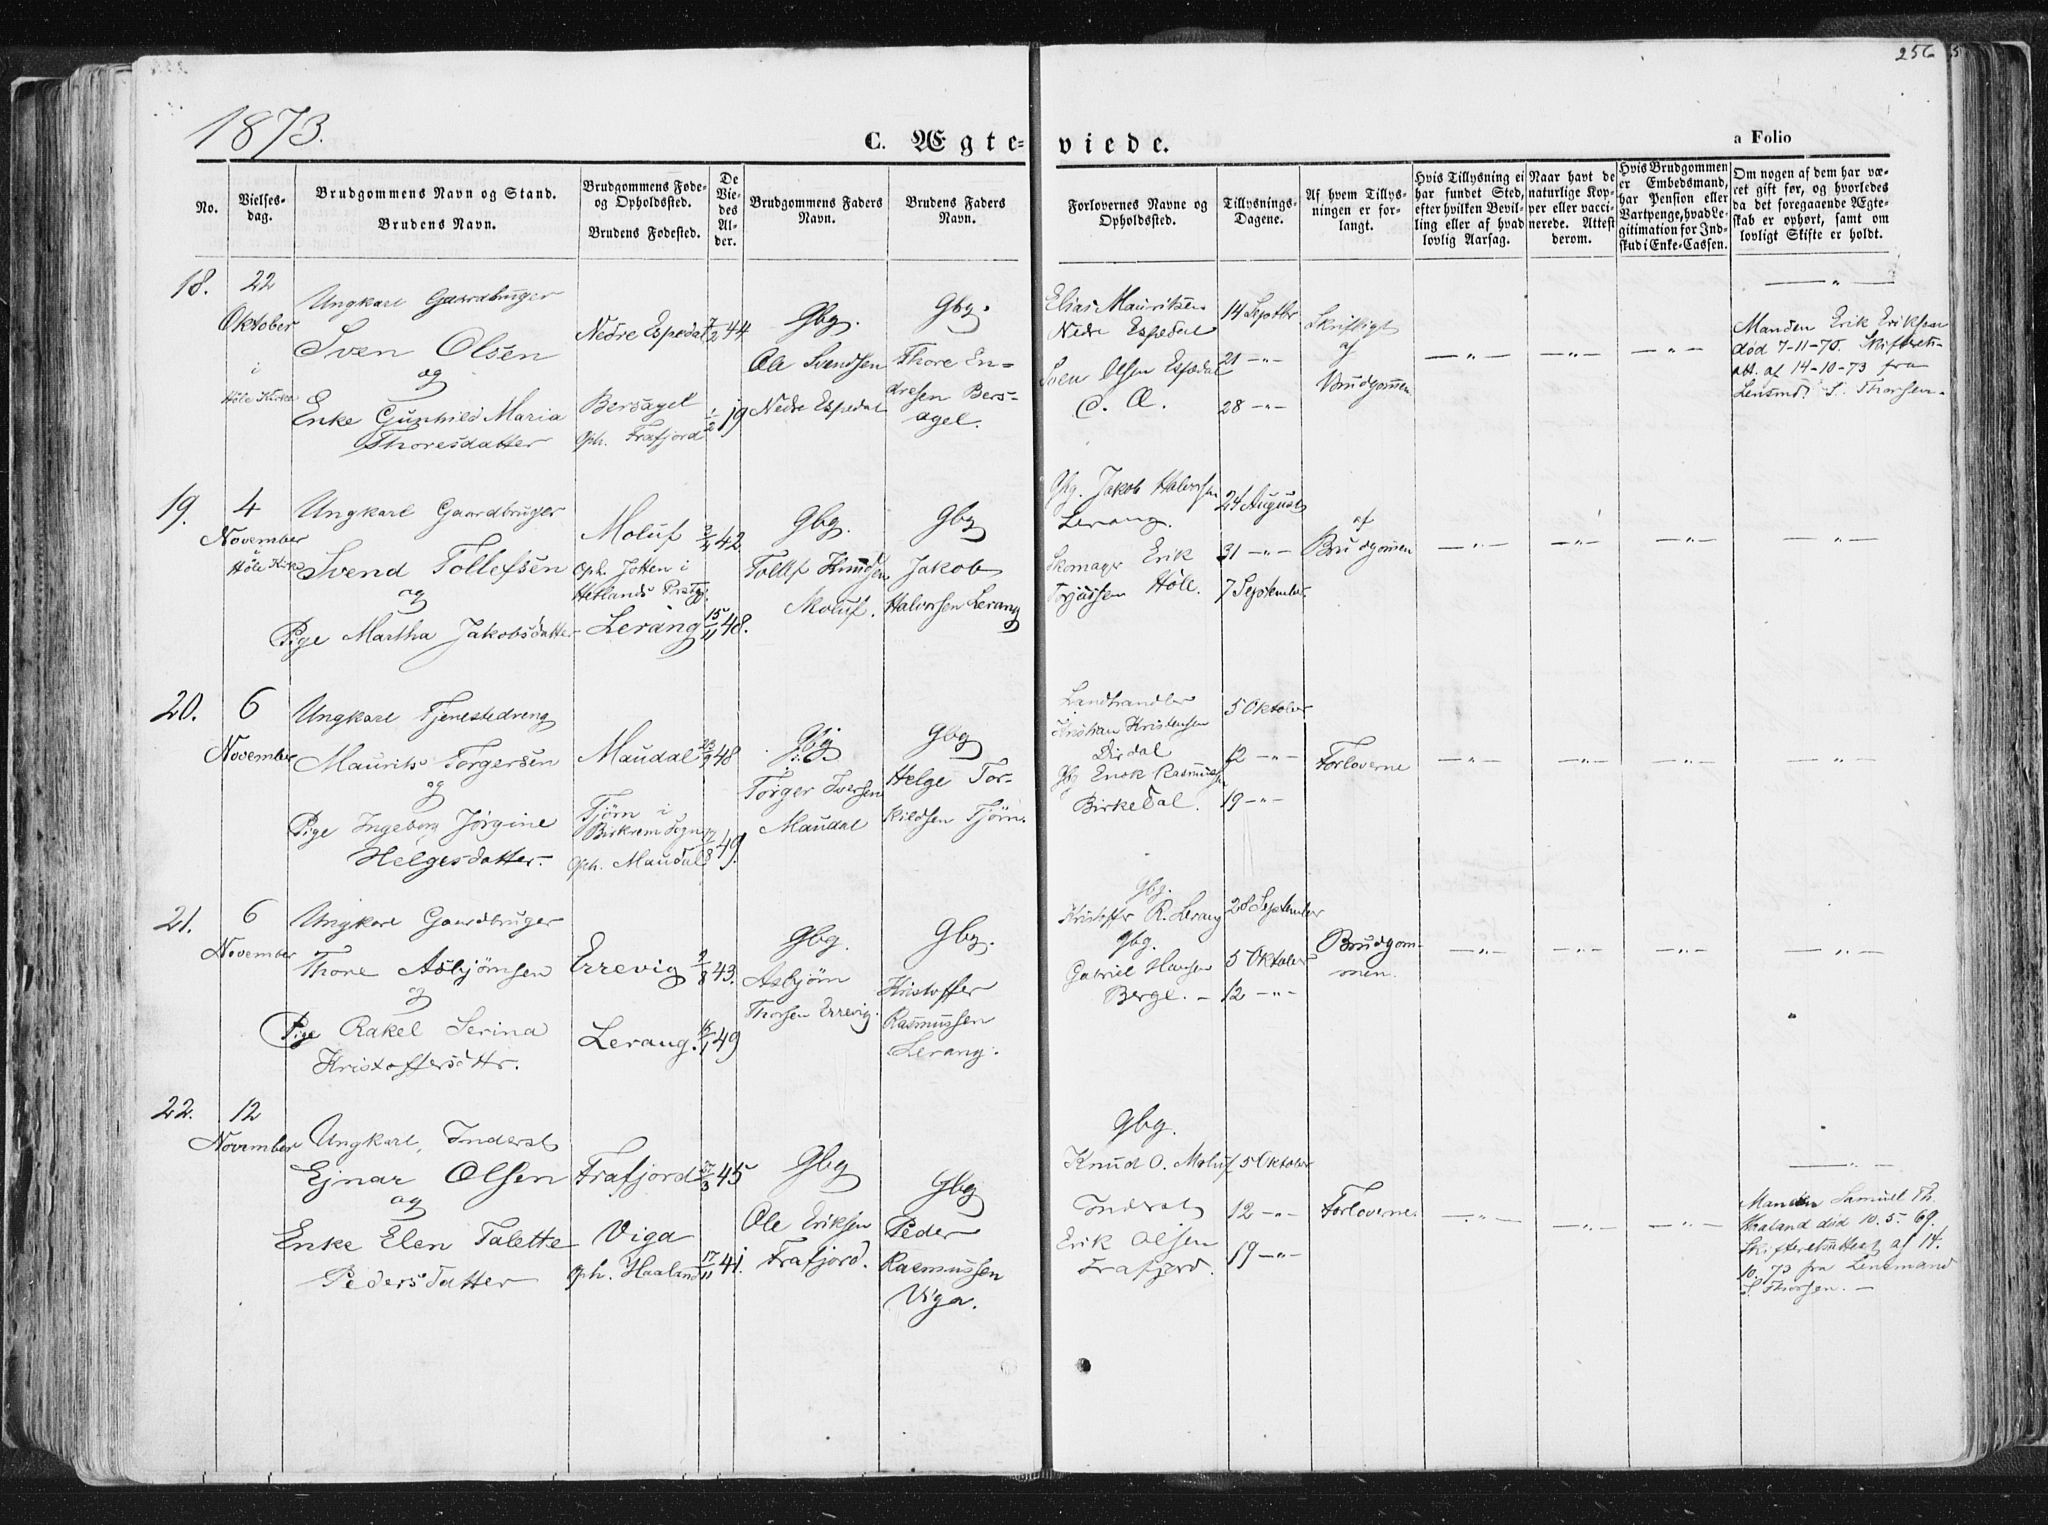 256
1873.
C. Ægteviede.
a Folio
No.
Vielsesdag.
Brudgommens Navn og Stand.
Brudens Navn.
Brudgommens Føde- og Opholdssted.
Brudens Fødested.
De Viedes Alder.
Brudgommens Faders Navn.
Brudens Faders Navn.
Forlovernes Navne og Opholdssted.
Tillysnings-Dagene.
Af hvem Tillysningen er forlangt.
Hvis Tillysning ei har fundet Sted, efter hvilken Bevilling eller af hvad lovlig Aarsag.
Naar havt de naturlige Kopper eller vaccinerede. Attest derom.
Hvis Brudgommen er Embedsmand, har Pension eller Vartpenge, hvad Legitimation for Indskud i Enke-Cassen.
Om nogen af dem har været gift før, og hvorledes da det foregaaende Ægteskab er ophørt, samt om lovligt Skifte er holdt.
18.
22
Oktober
i
Høle Kirke
Ungkarl Gaardbruger
Sven Olsen
og
Enke Gunhild Maria
Thoresdatter
Nedre Espedal
Bersagel
Oph. Frafjord
7/2 44
1/2 19
Gbg.
Ole Svendsen
Nedre Espedal
Gbg.
Thore En-
dresen Bers-
agel.
Elias Mauritsen
Nedre Espedal
Sven Olsen Espedal
14 Septbr
21 -"-
28 -"-
Skriftligt
af
Brudgommen
-"-
-"-
-"-
-"-
Manden Erik Eriksen
død 7-11-70. Skifterets-
att. af 14-10-73 fra
Lensmd. S. Thorsen.
19.
4
November
Høle Kirke
Ungkarl Gaardbruger
Svend Tollefsen
og
Pige Martha Jakobsdatter
Moluf
Oph. Jotten i
Hetlands Prstgj.
Lerang
42
15/11 48.
Gbg.
Tollef Knudsen
Moluf.
Gbg
Jakob
Halvorsen Lerang
Gbg. Jakob Halvorsen
Lerang.
Skomager Erik
Høll.
24 August
31 -"-
7 September
af
Brudgommen
-"-
-"-
-"-
-"-
20.
6
November
Ungkarl Tjenestedreng
Maurits Torgersen
og
Pige Ingeborg Jørgine
Helgesdatter.
Maudal
Tjørn i
Birkrem Sogn
Oph. Maudal
23/9 48
49.
Gbg
Torger Iversen
Maudal
Gbg
Helge Tor-
kildsen Tjørn.
Landhandler
Kristian Kristensen
Dirdal
Gbg Enok Rasmussen
Birkedal.
5 Oktober
12 -"-
19 -"-
Forloverne
-"-
-"-
-"-
-"-
21.
6
November
Ungkarl Gaardbruger
Thore Asbjørnsen
og
Pige Rakel Serina
Kristoffersdttr.
Errevig
Lerang.
2/8 43.
16/1 49
Gbg.
Asbjørn
Thorsen Errevig.
Gbg.
Kristoffer
Rasmussen
Lerang.
Gbg.
Kristoffer R. Lerang
Gbg.
Gabriel Hansen
Berge.
28 September
5 Oktober
12 -"-
Brudgom-
men.
-"-
-"-
-"-
-"-
22.
12
November
Ungkarl, Inderst
Ejnar Olsen
og
Enke Elen Talette
Pedersdatter
Frafjord
Viga
Oph. Haaland
27/3 45
17/11 41.
Gbg
Ole Eriksen
Frafjord.
Gbg
Peder
Rasmussen
Viga.
Gbg.
Knud O. Moluf
Inderst
Erik Olsen
Frafjord.
5 Oktober
12 -"-
19 -"-
Forloverne
-"-
-"-
-"-
-"-
Manden Samuel Th.
Haaland død 10.5.69.
Skifteretsattest af 14.
10.73 fra Lensmand
S. Thorsen.